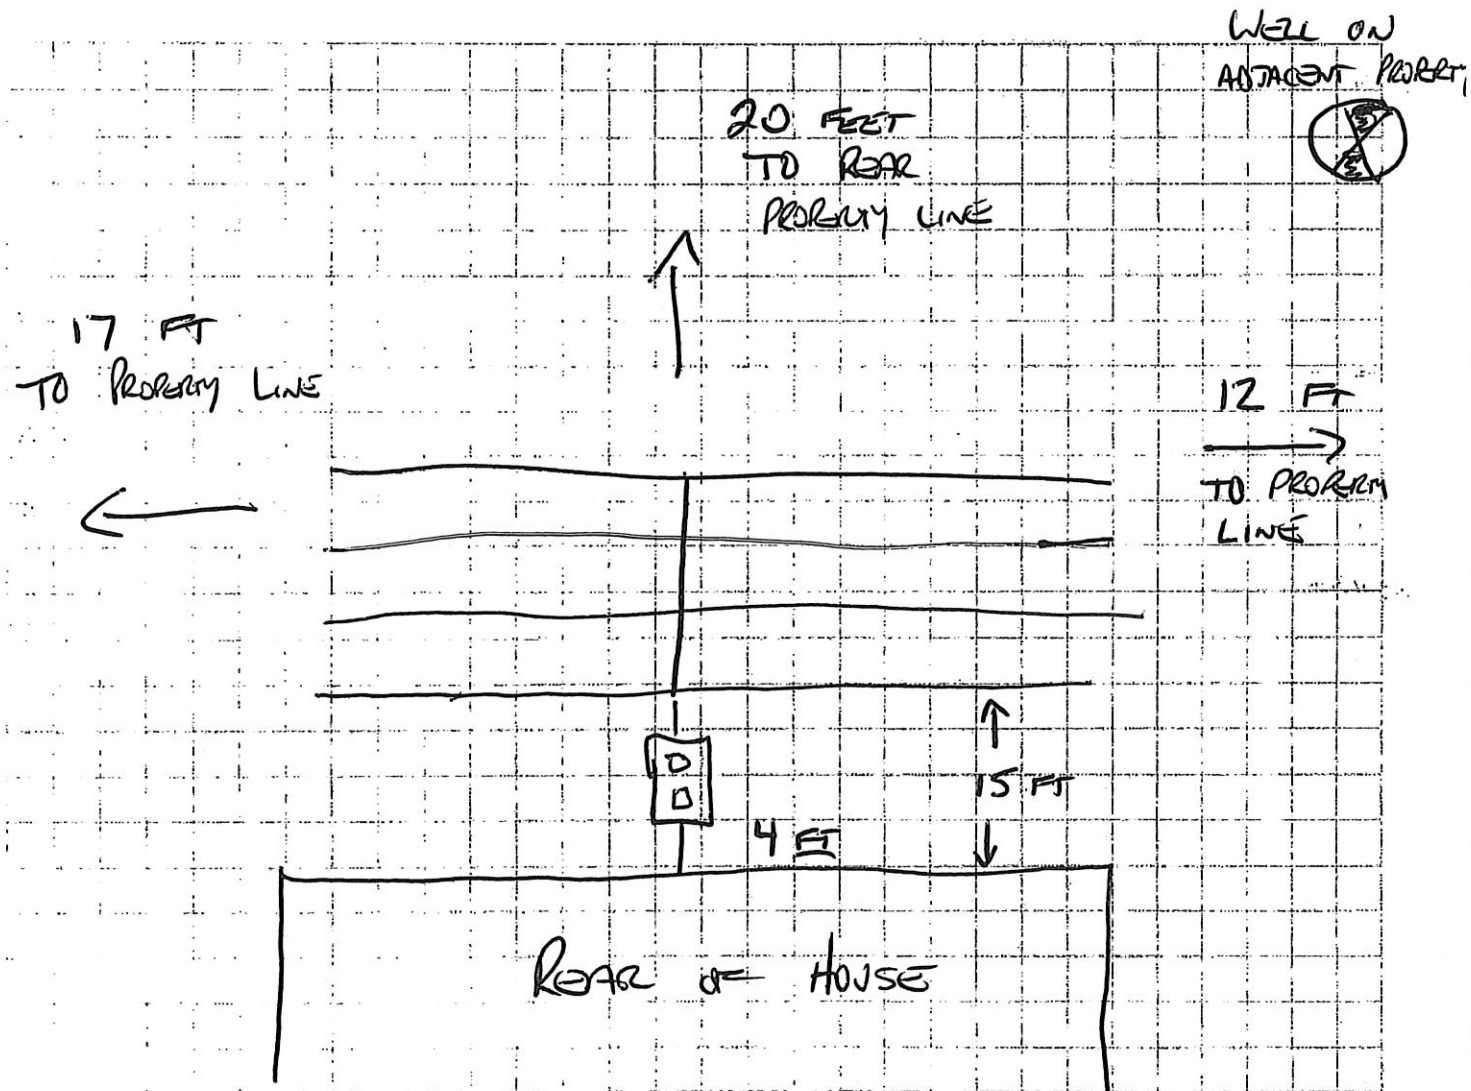 WELL ON
ADJACENT PROPERTY
20 FEET
TO REAR
PROPERTY LINE
17 FT
TO PROPERTY LINE
12 FT
TO PROPERTY
LINE
15 FT
4 FT
REAR OF HOUSE